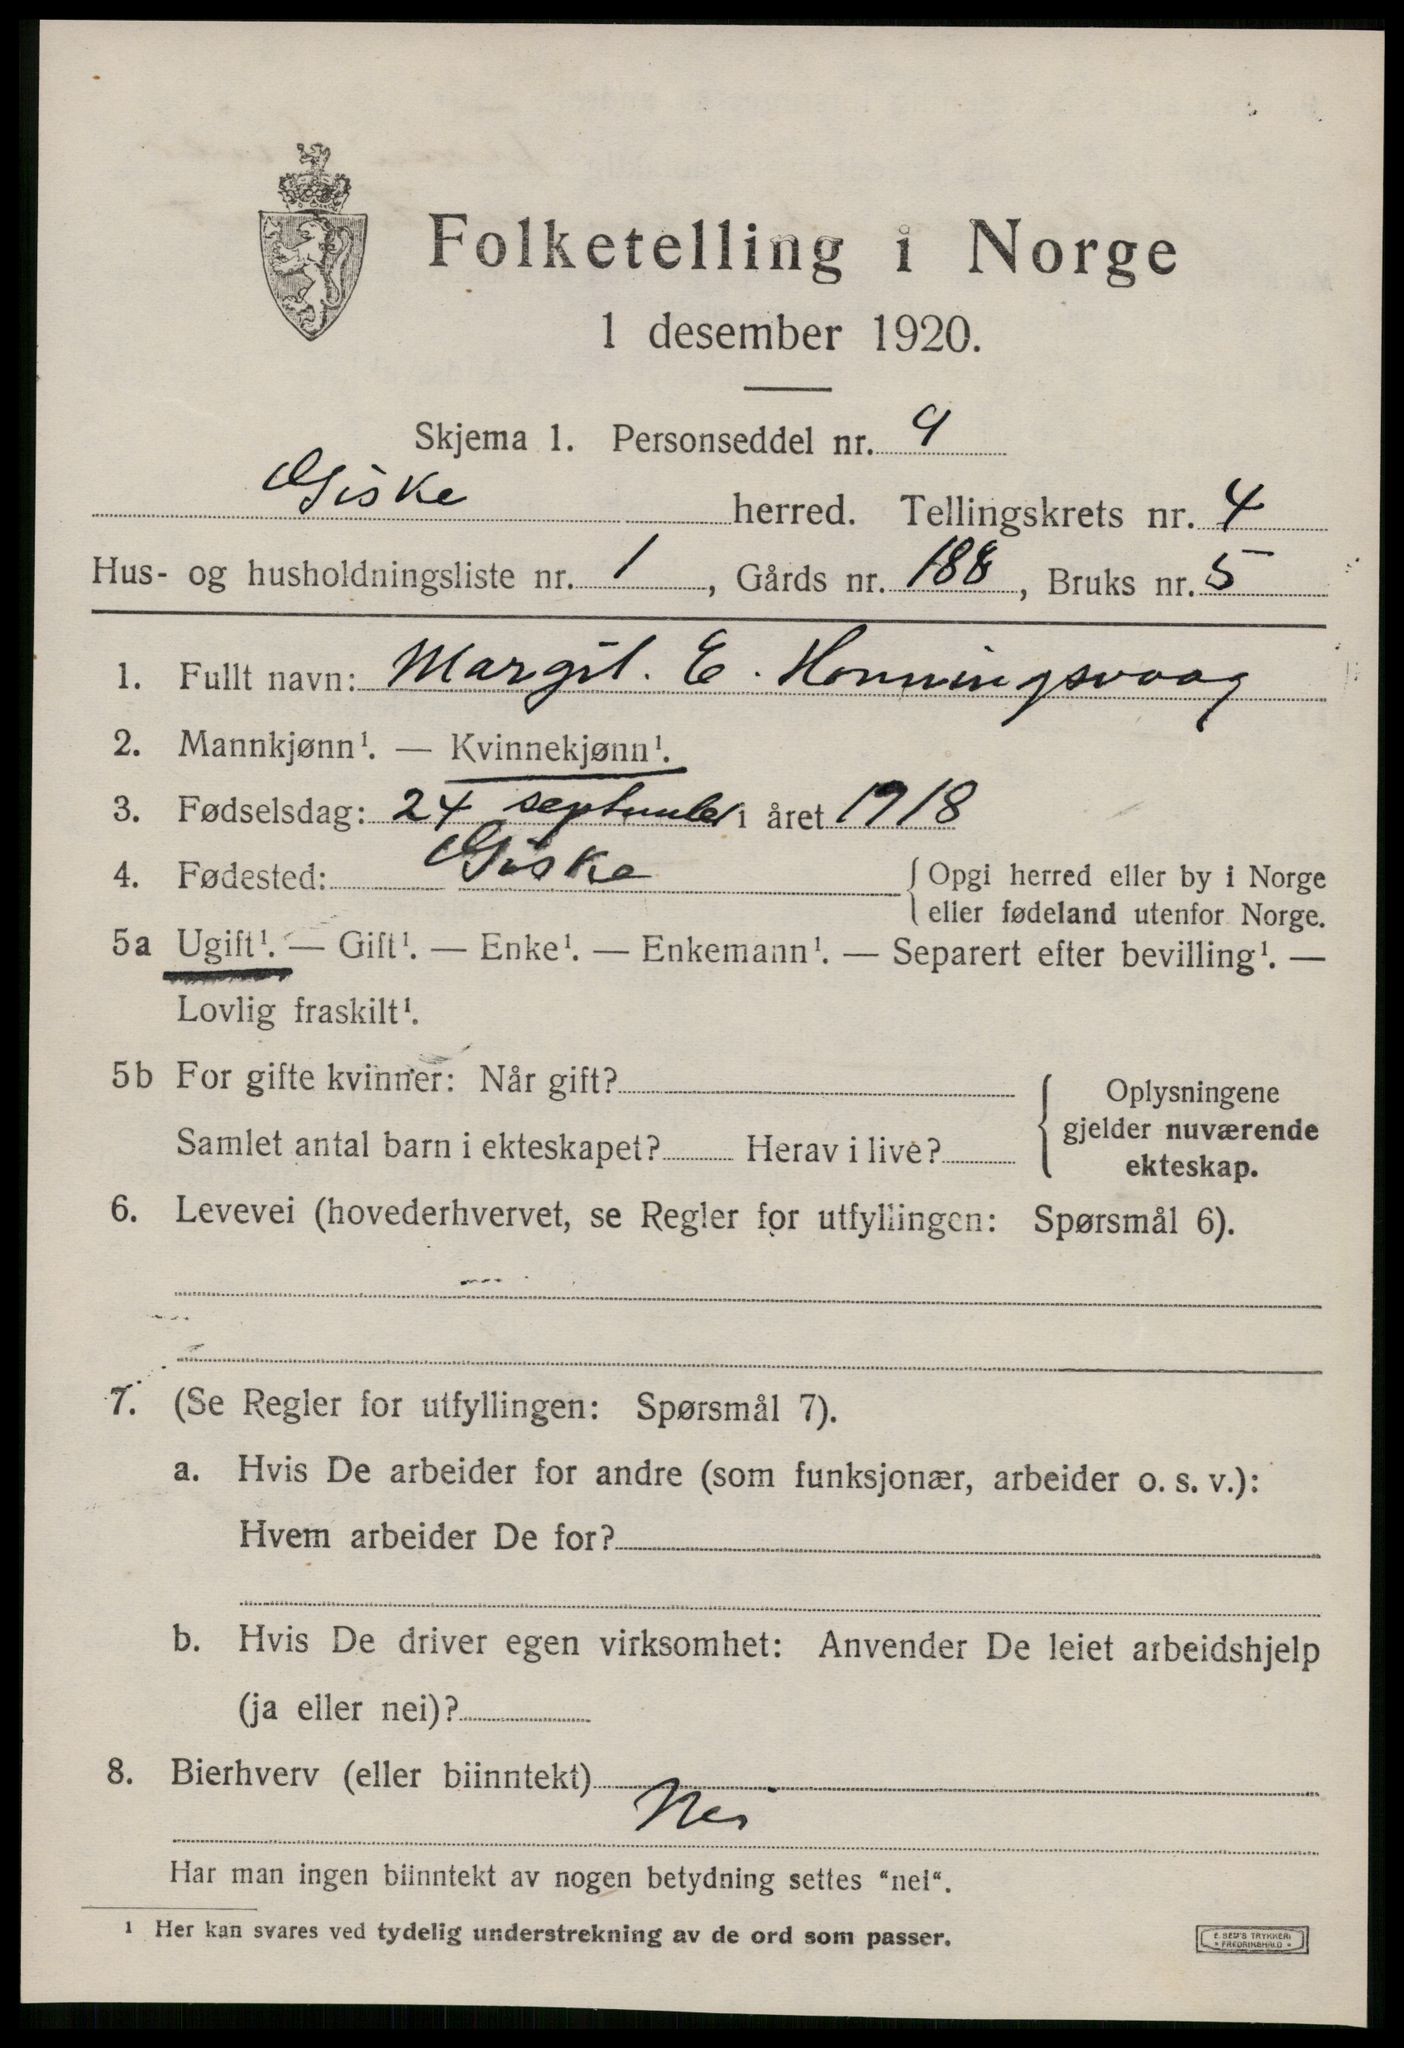 Folketelling i Norge
1 desember 1920.
Skjema 1. Personseddel nr. 9
Giske herred. Tellingskrets nr. 4
Hus- og husholdningsliste nr. 1, Gårds nr. 188, Bruks nr. 5
1. Fullt navn: Margit. E. Honningsvaag
2. Mannkjønn¹. — Kvinnekjønn¹.
3. Fødselsdag: 24 september i året 1918
4. Fødested: Giske { Opgi herred eller by i Norge
eller fødeland utenfor Norge.
5a Ugift¹. — Gift¹. — Enke¹. — Enkemann¹. — Separert efter bevilling¹. —
Lovlig fraskilt¹.
5b For gifte kvinner: Når gift?
Samlet antal barn i ekteskapet? Herav i live?
{ Oplysningene
gjelder nuværende
ekteskap.
6. Levevei (hovederhvervet, se Regler for utfyllingen: Spørsmål 6).
7. (Se Regler for utfyllingen: Spørsmål 7).
a. Hvis De arbeider for andre (som funksjonær, arbeider o. s. v.):
Hvem arbeider De for?
b. Hvis De driver egen virksomhet: Anvender De leiet arbeidshjelp
(ja eller nei)?
8. Bierhverv (eller biinntekt)
Nei
Har man ingen biinntekt av nogen betydning settes "nei".
¹ Her kan svares ved tydelig understrekning av de ord som passer.
E. SEM'S TRYKKERI
• FREDRIKSHALD •